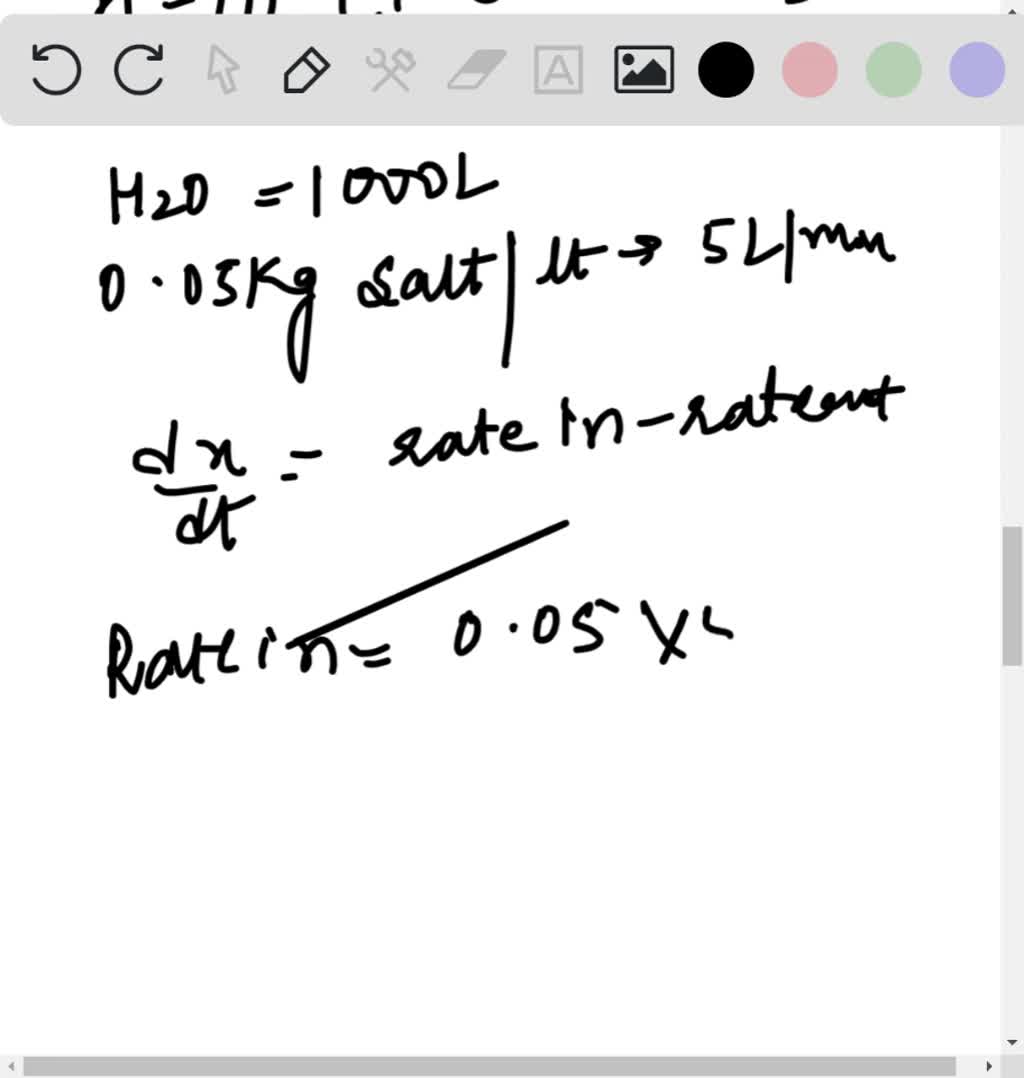 H2O = 1000L
0.05Kg salt / lt → 5L/min
dx/dt = rate in - rate out
Rate in = 0.05 X